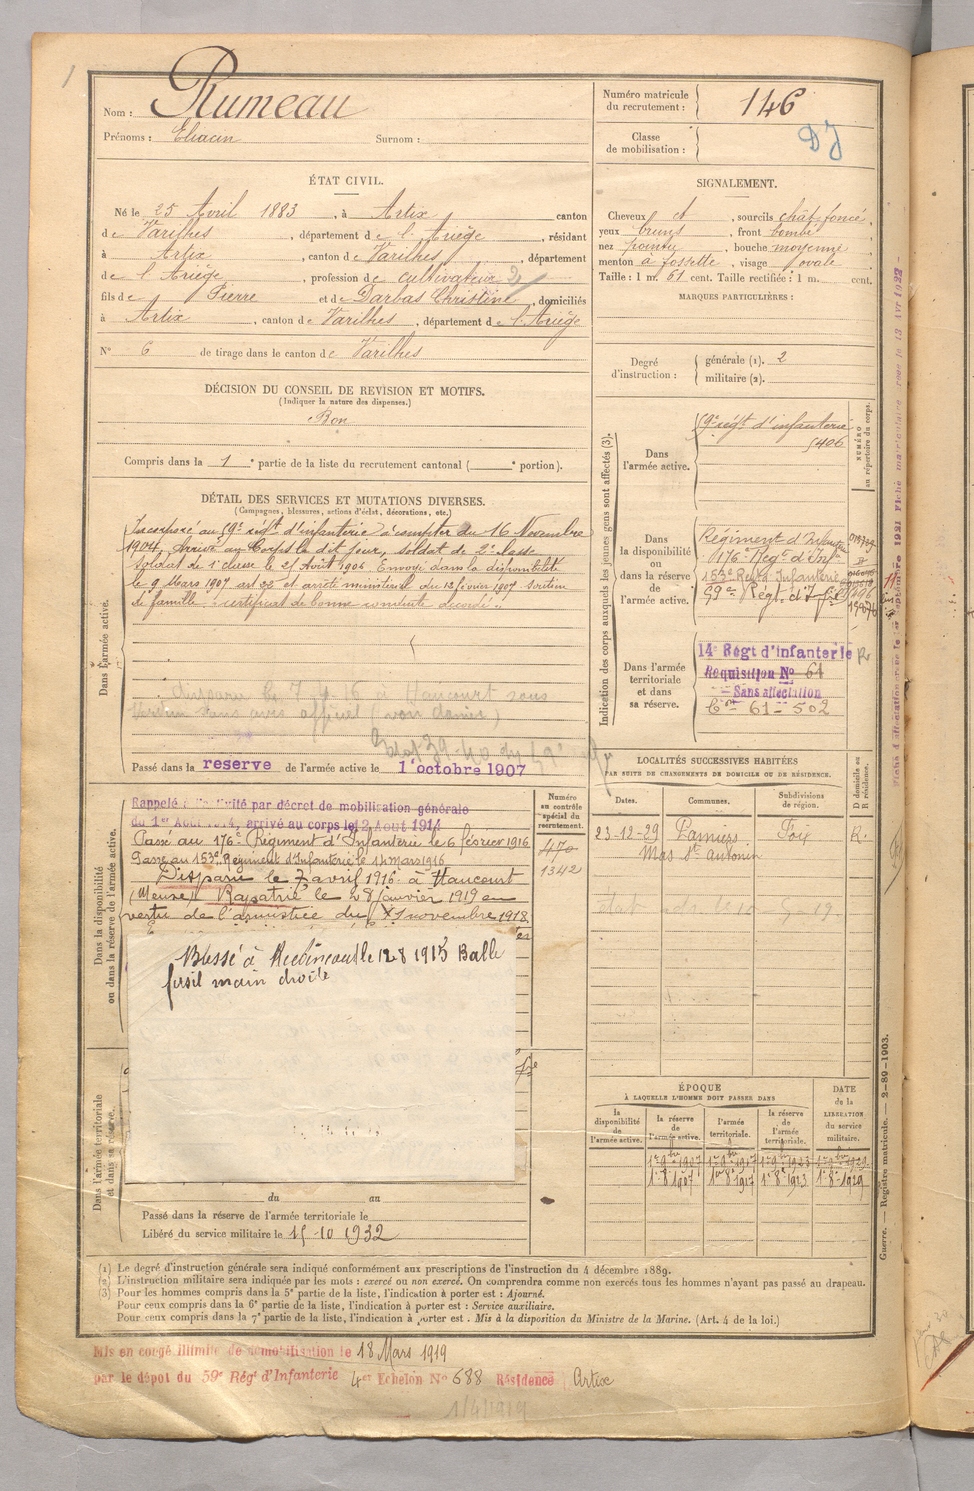 Nom : Rumeau
Prénoms : Eliacin Surnom :
Numéro matricule du recrutement : 146
Classe de mobilisation :
DJ
ÉTAT CIVIL.
Né le 25 Avril 1883, à Artix canton
de Varilhes, département de l'Ariège, résidant
à Artix, canton de Varilhes, département
de l'Ariège, profession de cultivateur 2
fils de Pierre et de Darbas Christine, domiciliés
à Artix, canton de Varilhes, département de l'Ariège
N° 6 de tirage dans le canton de Varilhes
SIGNALEMENT.
Cheveux ch, sourcils chât foncé,
yeux bruns, front bombé,
nez pointu, bouche moyenne
menton à fossette, visage ovale
Taille : 1 m. 61 cent. Taille rectifiée : 1 m. cent.
MARQUES PARTICULIÈRES :
Degré d'instruction : générale (1). 2
militaire (2).
DÉCISION DU CONSEIL DE REVISION ET MOTIFS.
(Indiquer la nature des dispenses.)
Bon
Compris dans la 1e partie de la liste du recrutement cantonal ( e portion).
DÉTAIL DES SERVICES ET MUTATIONS DIVERSES.
(Campagnes, blessures, actions d'éclat, décorations, etc.)
Dans l'armée active.
Incorporé au 59e régt d'infanterie à compter du 16 Novembre
1904, arrivé au Corps le dit jour, soldat de 2e classe
Soldat de 1e classe le 25 Août 1906 Envoyé dans la disponibilité
le 9 Mars 1907 art 22 et arrêté ministériel du 12 février 1907 soutien
de famille. certificat de bonne conduite accordé.
disparu le 7-4-6 à Haucourt sous
Verdun sans avis officiel
Passé dans la reserve de l'armée active le 1er octobre 1907
Indication des corps auxquels les jeunes gens sont affectés (3).
Dans l'armée active.
59e régt d'infanterie
5406
NUMÉRO au répertoire du corps.
Dans la disponibilité ou dans la réserve de l'armée active.
Régiment d'Infanterie
176e Régt d'Inf
153e Regt d'Infanterie
59e Régt d'Infie
Dans l'armée territoriale et dans sa réserve.
14e Régt d'infanterie
Requisition N° 61
Sans affectation
61-502
R
LOCALITÉS SUCCESSIVES HABITÉES
PAR SUITE DE CHANGEMENTS DE DOMICILE OU DE RÉSIDENCE.
Dates. Communes. Subdivisions de région. D domicile ou R résidence.
23-12-29 Pamiers Foix R.
Mas St Antonin
Dans la disponibilité ou dans la réserve de l'armée active.
Rappelé à l'activité par décret de mobilisation générale
du 1er Août 1914, arrivé au corps le 12 Août 1914
Passé au 176e Régiment d'Infanterie le 6 février 1916
Passé au 153e Régiment d'Infanterie le 14 mars 1916
Disparu le 7 avril 1916 à Haucourt
(Meuse) Rapatrié le 28 janvier 1919 en
vertu de l'armistice du 11 novembre 1918.
Numéro au contrôle spécial du recrutement.
470
1342
Blessé à le 12 8 1915 Balle
fusil main droite
Dans l'armée territoriale et dans sa réserve.
du au
Passé dans la réserve de l'armée territoriale le
Libéré du service militaire le 15-10 1932
ÉPOQUE
À LAQUELLE L'HOMME DOIT PASSER DANS
la disponibilité de l'armée active. la réserve de l'armée active. l'armée territoriale. la réserve de l'armée territoriale. DATE de la LIBÉRATION du service militaire.
1er 9bre 1907 1er 9bre 1917 1er 9bre 1923 1er 9bre 1929
1er 8bre 1907 1er 8bre 1917 1er 8bre 1923 1er 8bre 1929
Guerre. — Registre matricule. — 2-89-1903.
(1) Le degré d'instruction générale sera indiqué conformément aux prescriptions de l'instruction du 4 décembre 1889.
(2) L'instruction militaire sera indiquée par les mots : exercé ou non exercé. On comprendra comme non exercés tous les hommes n'ayant pas passé au drapeau.
(3) Pour les hommes compris dans la 5e partie de la liste, l'indication à porter est : Ajourné.
Pour ceux compris dans la 6e partie de la liste, l'indication à porter est : Service auxiliaire.
Pour ceux compris dans la 7e partie de la liste, l'indication à porter est : Mis à la disposition du Ministre de la Marine. (Art. 4 de la loi.)
Mis en congé illimité de démobilisation le 18 Mars 1919
par le dépot du 59e Régt d'Infanterie 4e Echelon N° 688 Résidence Artix
1/4/1919